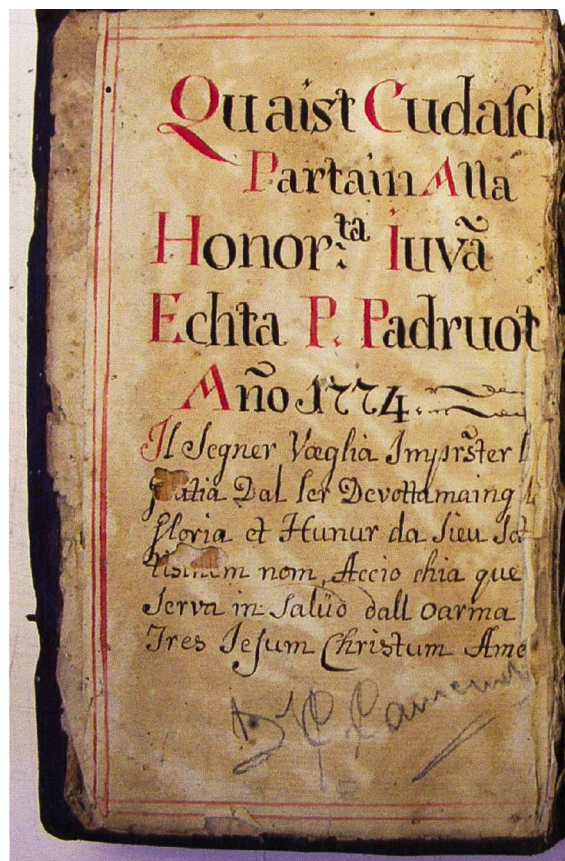 Quaist Cudasch
Partain Alla
Honor.ta Iuvã
Echta P. Padruot
Año 1774.
Il Segner Væglia Imprs̃ter
Gratia Dal ser Devottamaing
Gloria et Hunur da sieu
nom, Accio chia que
Serva in Salüd dall oarma
Tres Jesum Christum Ame